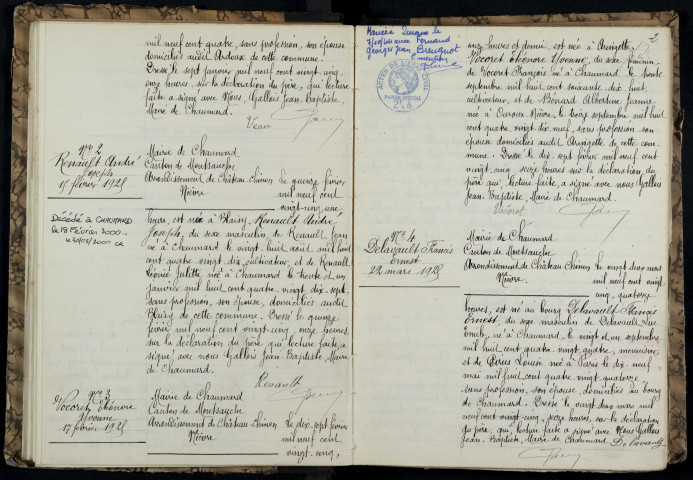 mil neuf cent quatre, sans profession, son épouse
domiciliés audit Ardoux de cette commune.
Dressé le sept janvier mil neuf cent vingt cinq
onze heures, sur la déclaration du père, qui lecture
faite a signé avec Nous, Gallois Jean-Baptiste,
Maire de Chaumard.
No 2
Renault André
Joseph
15 février 1925
Décédé à CHAUMARD
le 18 Février 2000
Mairie de Chaumard
Canton de Montsauche
Arrondissement de Château-Chinon
Nièvre
Le quinze février
mil neuf cent
vingt-cinq, une
heure, est né à Blaisy, Renault André
Joseph, du sexe masculin, de Renault Jean
né à Chaumard le vingt huit août mil huit
cent quatre vingt dix, cultivateur, et de Renault
Léonie Juliette, née à Chaumard le trente et un
janvier mil huit cent quatre-vingt-dix-sept,
sans profession, son épouse, domiciliés audit
Blaisy de cette commune. Dressé le quinze
février mil neuf cent vingt-cinq, onze heures,
sur la déclaration du père qui, lecture faite, a
signé avec nous Gallois Jean-Baptiste, Maire
de Chaumard.
Renault
No 3
Vocoret Eléonore
Yvonne
17 février 1925
Mairie de Chaumard
Canton de Montsauche
Arrondissement de Château-Chinon
Nièvre
Le dix sept février
mil neuf cent
vingt-cinq,
2
Fernand
Georges Jean
ACTES DE L'ETAT CIVIL
PAPIER SPECIAL
onze heures et demie, est née à
Vocoret Eléonore Yvonne, du sexe féminin
de Vocoret François né à Chaumard le trente
septembre mil huit cent soixante dix huit,
cultivateur, et de Bénard Albertine Jeanne
née à Ouroux Nièvre, le treize septembre mil huit
cent quatre vingt-dix-neuf, sans profession son
épouse domiciliés audit de cette com-
mune. Dressé le dix sept février mil neuf cent
vingt-cinq, seize heures sur la déclaration du
père qui, lecture faite, a signé avec nous Gallois
Jean-Baptiste, Maire de Chaumard.
Vocoret
No 4
Delavault Francis
Ernest
22 mars 1925
Mairie de Chaumard
Canton de Montsauche
Arrondissement de Château-Chinon
Nièvre
Le vingt deux mars
mil neuf cent vingt
cinq, quatorze
heures, est né au bourg Delavault Francis
Ernest, du sexe masculin de Delavault Luc
Emile, né à Chaumard, le vingt et un septembre
mil huit cent quatre vingt quatre, menuisier,
et de Louise née à Paris le dix neuf
mai mil huit cent quatre-vingt quatorze,
sans profession, son épouse, domiciliés au bourg
de Chaumard. Dressé le vingt deux mars mil
neuf cent vingt-cinq, seize heures, sur la déclaration
du père, qui, lecture faite a signé avec Nous Gallois
Jean-Baptiste, Maire de Chaumard. Delavault